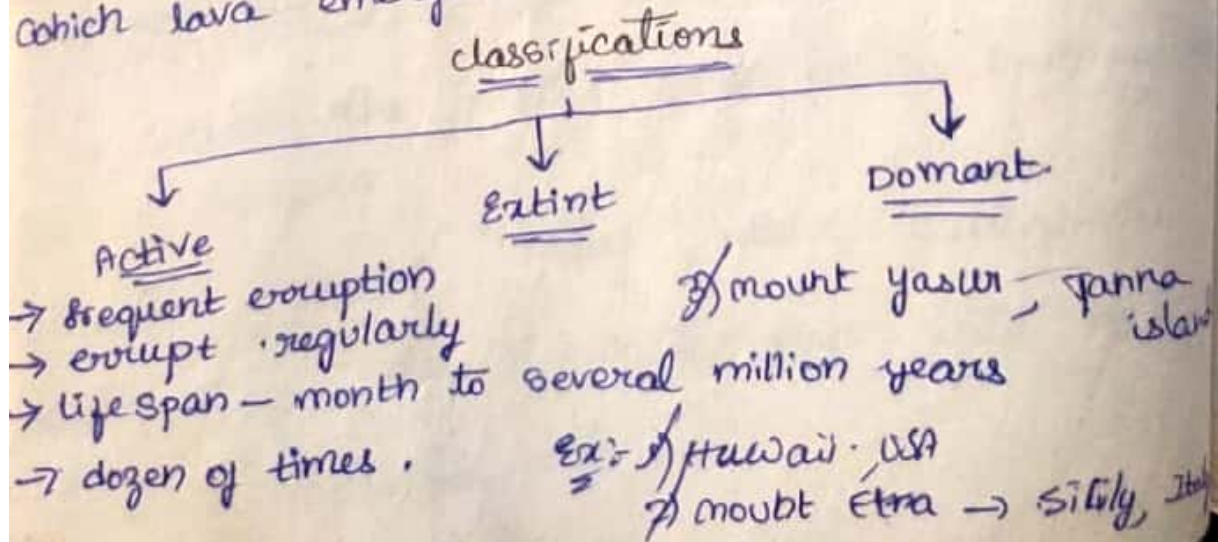 which lava
classifications
Active
Extint
Domant.
→ frequent erouption
→ errupt regularly
→ life span – month to several million years
→ dozen of times.
3) mount yasur, Tanna
Ex:- 1) Huwaii, USA
2) moubt Etna → Sicily,